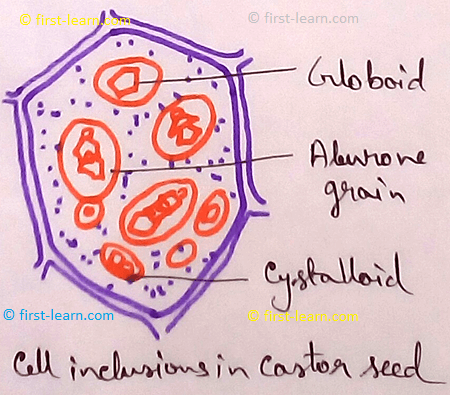 © first-learn.com
© first-learn.com
Globoid
Aleurone
grain
Cystalloid
© first-learn.com
© first-learn.com
Cell inclusions in Castor seed